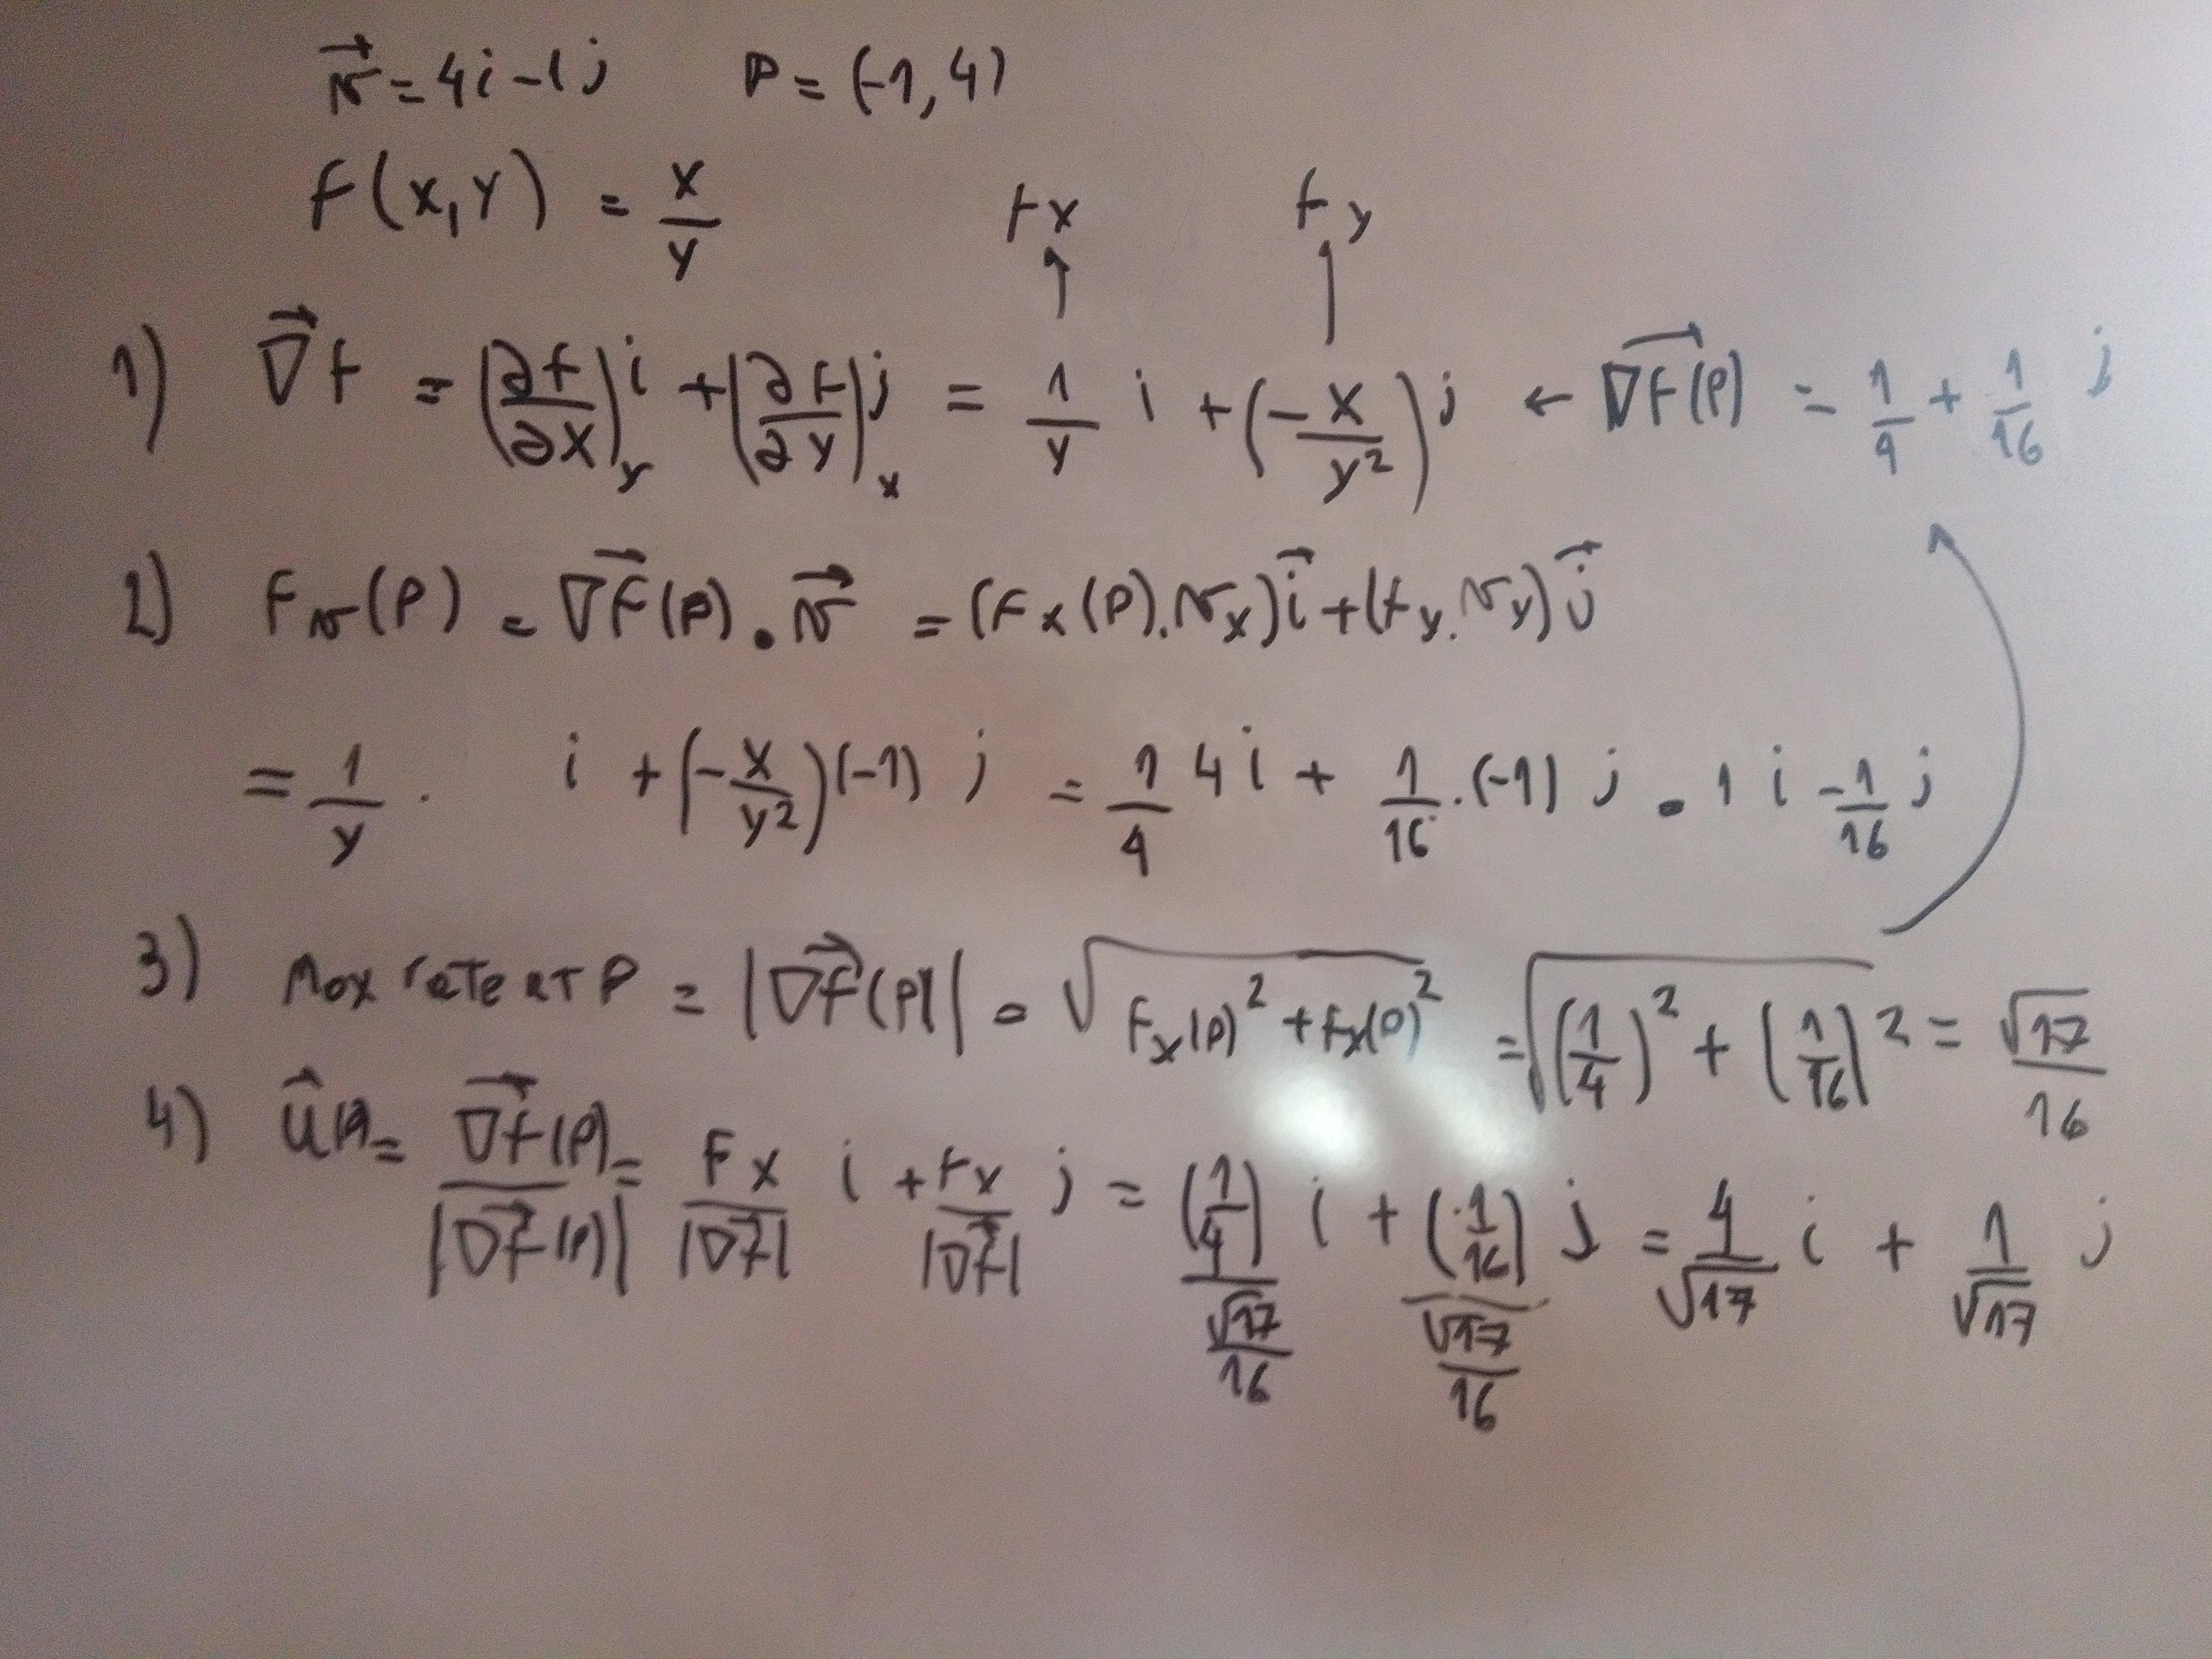 v⃗ = 4i - 1j    P = (-1, 4)
f(x, y) = x/y    fx    fy
1) ∇⃗f = (∂f/∂x)_y i + (∂f/∂y)_x j = 1/y i + (-x/y²) j ← ∇⃗f(P) = 1/4 + 1/16 j
2) Fv(P) = ∇⃗f(P) • v⃗ = (Fx(P).vx) i⃗ + (fy.vy) j⃗
= 1/y . i + (-x/y²)(-1) j = 1/4 4i + 1/16 . (-1) j = 1i - 1/16 j
3) Max rate at P = |∇⃗f(P)| = √(Fx(P)² + Fx(P)²) = √((1/4)² + (1/16)²) = √17/16
4) û(P) = ∇⃗f(P)/|∇⃗f(P)| = Fx/|∇⃗f| i + Fx/|∇⃗f| j = (1/4)/(√17/16) i + (1/16)/(√17/16) j = 4/√17 i + 1/√17 j